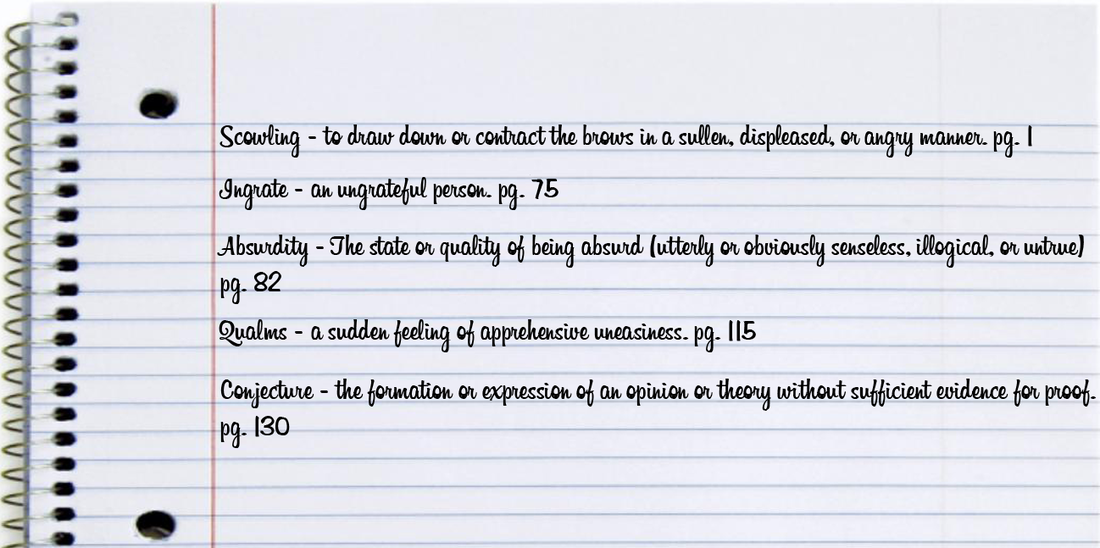 Scowling - to draw down or contract the brows in a sullen, displeased, or angry manner. pg. 1
Ingrate - an ungrateful person. pg. 75
Absurdity - The state or quality of being absurd (utterly or obviously senseless, illogical, or untrue)
pg. 82
Qualms - a sudden feeling of apprehensive uneasiness. pg. 115
Conjecture - the formation or expression of an opinion or theory without sufficient evidence for proof.
pg. 130